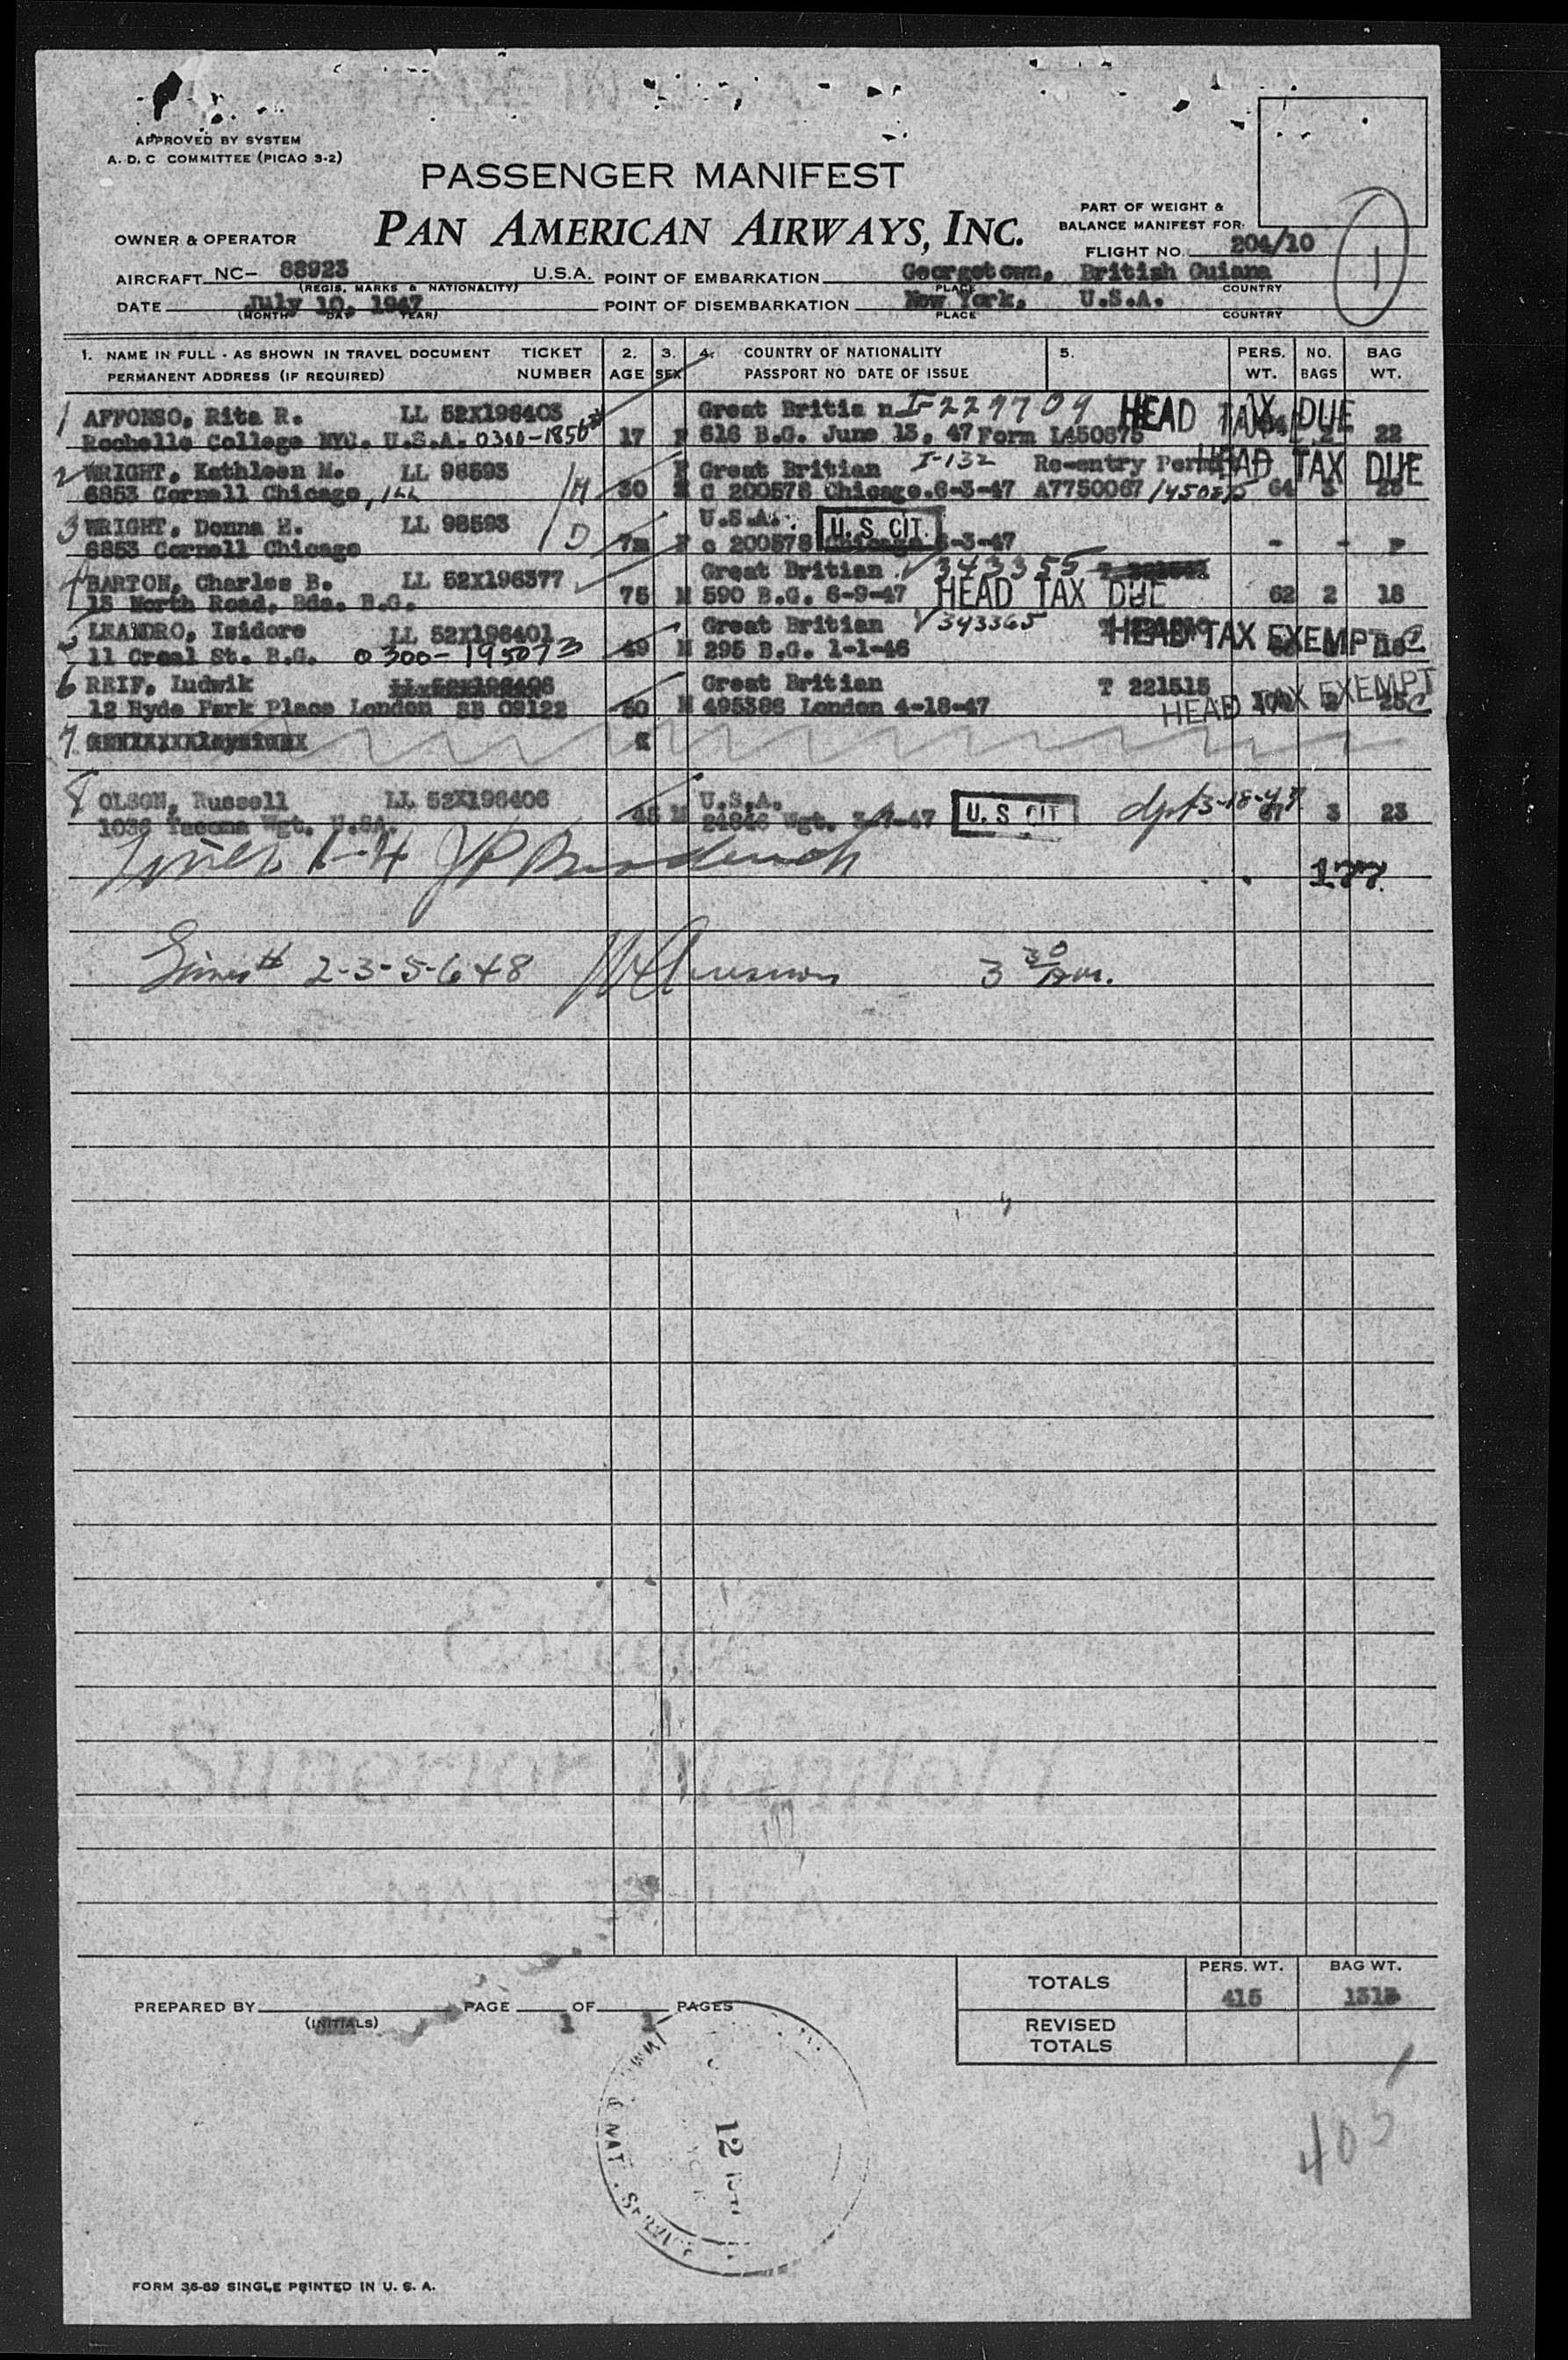 APPROVED BY SYSTEM
A. D. C COMMITTEE (PICAO 3-2)
PASSENGER MANIFEST
PAN AMERICAN AIRWAYS, INC.
PART OF WEIGHT &
BALANCE MANIFEST FOR:
OWNER & OPERATOR
FLIGHT NO. 204/10
1
AIRCRAFT NC- 88923 U.S.A. POINT OF EMBARKATION Georgetown, British Guiana
(REGIS. MARKS & NATIONALITY) PLACE COUNTRY
DATE July 10, 1947 POINT OF DISEMBARKATION New York, U.S.A.
(MONTH DAY YEAR) PLACE COUNTRY
1. NAME IN FULL - AS SHOWN IN TRAVEL DOCUMENT TICKET 2. 3. 4. COUNTRY OF NATIONALITY 5. PERS. NO. BAG
PERMANENT ADDRESS (IF REQUIRED) NUMBER AGE SEX PASSPORT NO DATE OF ISSUE WT. BAGS WT.
1 AFFONSO, Rita R. LL 52X196403 Great Britia n I-229704 HEAD TAX DUE
Rochelle College NYC. U.S.A. 17 F 616 B.G. June 13, 47 Form 2 22
2 WRIGHT, Kathleen M. LL 98593 M F Great Britian I-132 Re-entry HEAD TAX DUE
6853 Cornell Chicago, ILL 30 C 200578 Chicago.6-3-47 A7750067 64 3 25
3 WRIGHT, Donna LL 98593 D U.S.A. U.S CIT.
6853 Cornell Chicago 7m F c 200578 Chicago 6-3-47 - -
4 BARTON, Charles B. LL 52X196377 Great Britian V 343355
15 North Road, Bda. B.G. 75 M 590 B.G. 6-9-47 HEAD TAX DUE 62 2 18
5 LEANDRO, Isidore LL 52X196401 Great Britian V 343365 HEAD TAX EXEMPT C
11 Creal St. B.G. 0300-195073 49 M 295 B.G. 1-1-46
6 REIF, Ludwik Great Britian T 221515 HEAD TAX EXEMPT C
12 Hyde Park Place London SB 09122 50 M 495386 London 4-18-47
7
8 OLSON, Russell LL 52X196406 U.S.A. U.S CIT
1036 Tacoma Wgt. U.SA. 45 M Wgt. 47 3 23
Lines 1-4
177
Lines # 2-3-5-6 & 8 3 30
TOTALS PERS. WT. BAG WT.
415
PREPARED BY PAGE 1 OF 1 PAGES
(INITIALS)
REVISED
TOTALS
NAT. SERVICE
12
405
FORM 36-89 SINGLE PRINTED IN U. S. A.